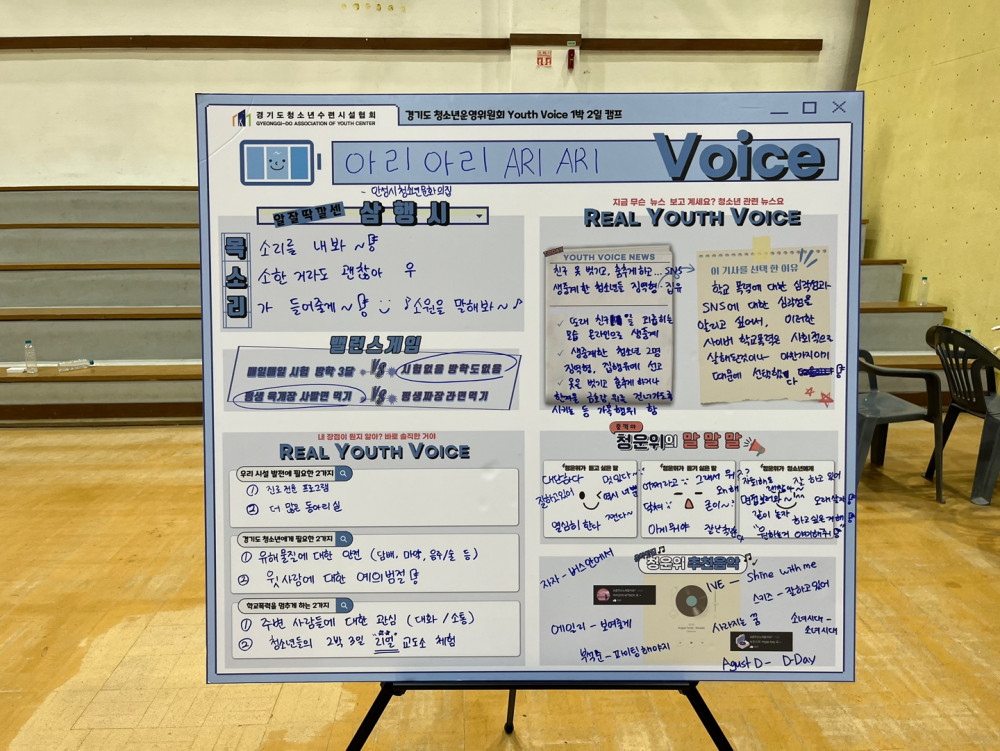 경기도청소년수련시설협회
GYEONGGI-DO ASSOCIATION OF YOUTH CENTER
경기도 청소년운영위원회 Youth Voice 1박 2일 캠프
아리 아리 ARI ARI
Voice
- 안성시청소년문화의집
알잘딱깔센 삼행시
목 소리를 내봐 ~
소 소한 거라도 괜찮아 우
리 가 들어줄게~ 소원을 말해봐~♪
밸런스게임
매일매일 시험 방학 3달 VS 시험없음 방학도없음
평생 육개장 사발면 먹기 VS 평생짜장라면먹기
내 장점이 뭔지 알아? 바로 솔직한 거야
REAL YOUTH VOICE
우리 시설 발전에 필요한 2가지
① 진로 전문 프로그램
② 더 많은 동아리실
경기도 청소년에게 필요한 2가지
① 유해물질에 대한 안전 (담배, 마약, 음주/술 등)
② 윗사람에 대한 예의범절
학교폭력을 멈추게 하는 2가지
① 주변 사람들에 대한 관심 (대화/소통)
② 청소년들의 2박 3일 리얼 교도소 체험
지금 무슨 뉴스 보고 계세요? 청소년 관련 뉴스요
REAL YOUTH VOICE
YOUTH VOICE NEWS
친구 옷 벗기고, 춤추게 하고... SNS
생중계한 청소년들 징역형·집유
✓ 또래 친구 을 괴롭히는
모습 온라인으로 생중계
✓ 생중계한 청소년 2명
징역형, 집행유예 선고
✓ 옷을 벗기고 춤추게 하거나
한겨울 위를 건너가도록
시키는 등 가혹행위 함
이 기사를 선택한 이유
학교 폭력에 대한 심각성과
SNS에 대한 심각성을
알리고 싶어서, 이러한
사이버 학교폭력은 사회적으로
때문에 선택했다
청운위의 말 말 말
청운위가 듣고 싶은 말
대단하다 멋있다~
잘하고있어 역시 너뿐
쩐다~
열심히 한다
청운위가 듣기 싫은 말
어쩌라고 그래서 뭐?
왜 해
닥쳐
청운위가 청소년에게
잘 하고 있어
같이 놀자
청운위 추천음악
지자 - 버스안에서
IVE - Shine with me
스키즈 - 잘하고있어
에일리 - 보여줄게
사라지는 꿈
소녀시대 -
소녀시대
부석순 - 파이팅 해야지
Agust D - D-Day